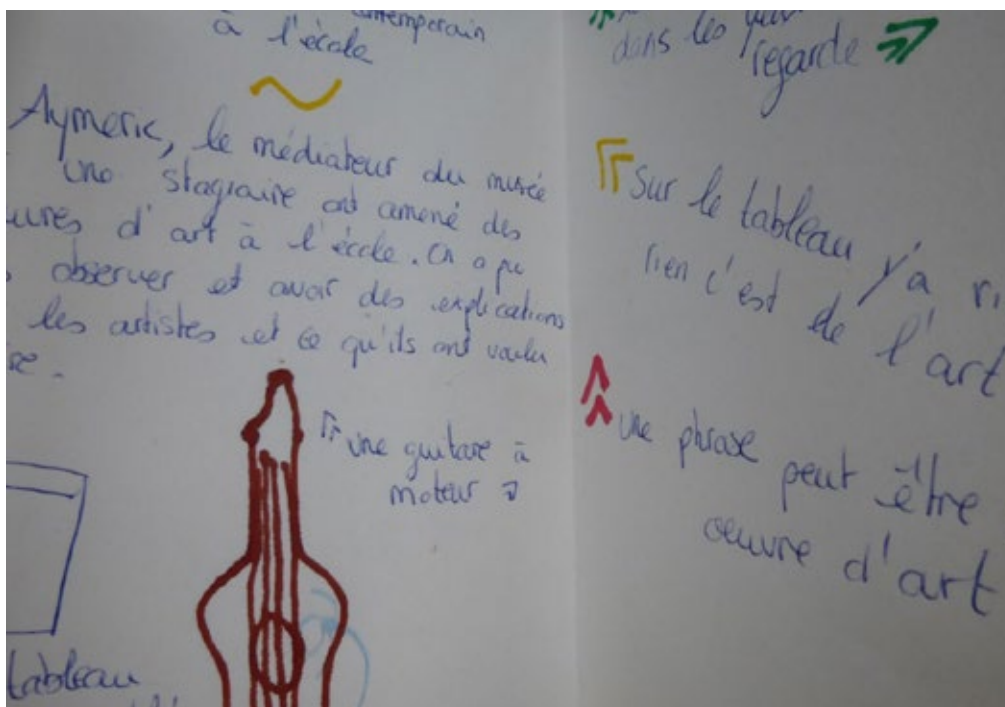 contemporain
à l'école
Aymeric, le médiateur du musée
une stagiaire ont amené des
uvres d'art à l'école. On a pu
observer et avoir des explications
les artistes et ce qu'ils ont voulu
une guitare à
moteur
tableau
dans les yeux
regarde
Sur le tableau y'a ri
rien c'est de l'art
une phrase peut être
oeuvre d'art